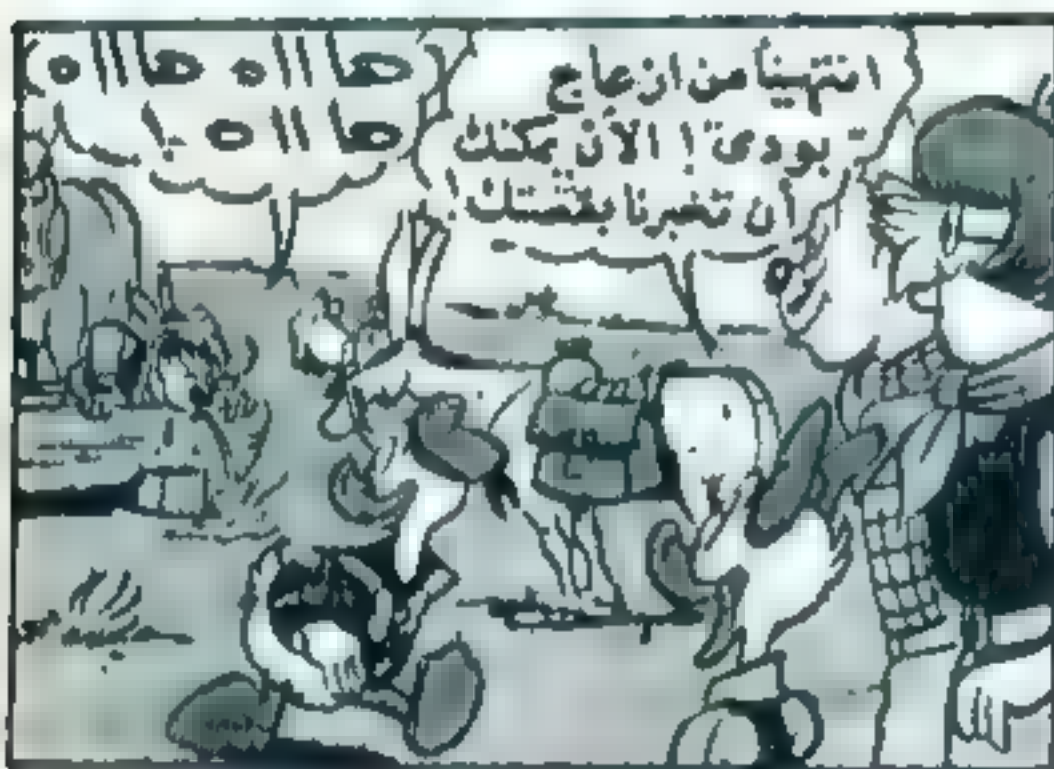 انتهينا من ازعاج
بودي ! الآن يمكنك
أن تخبرنا بقصتك !
ها ااه ها ااه
ها ااه !